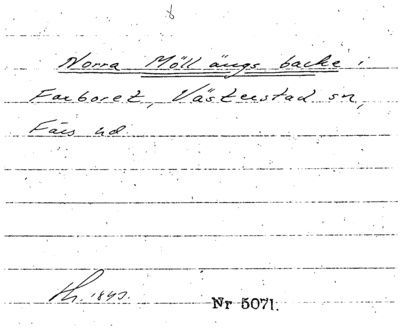 Norra Möllängs backe i
Farboret, Västerstad sn,
Färs hd.
1843.
Nr 5071.